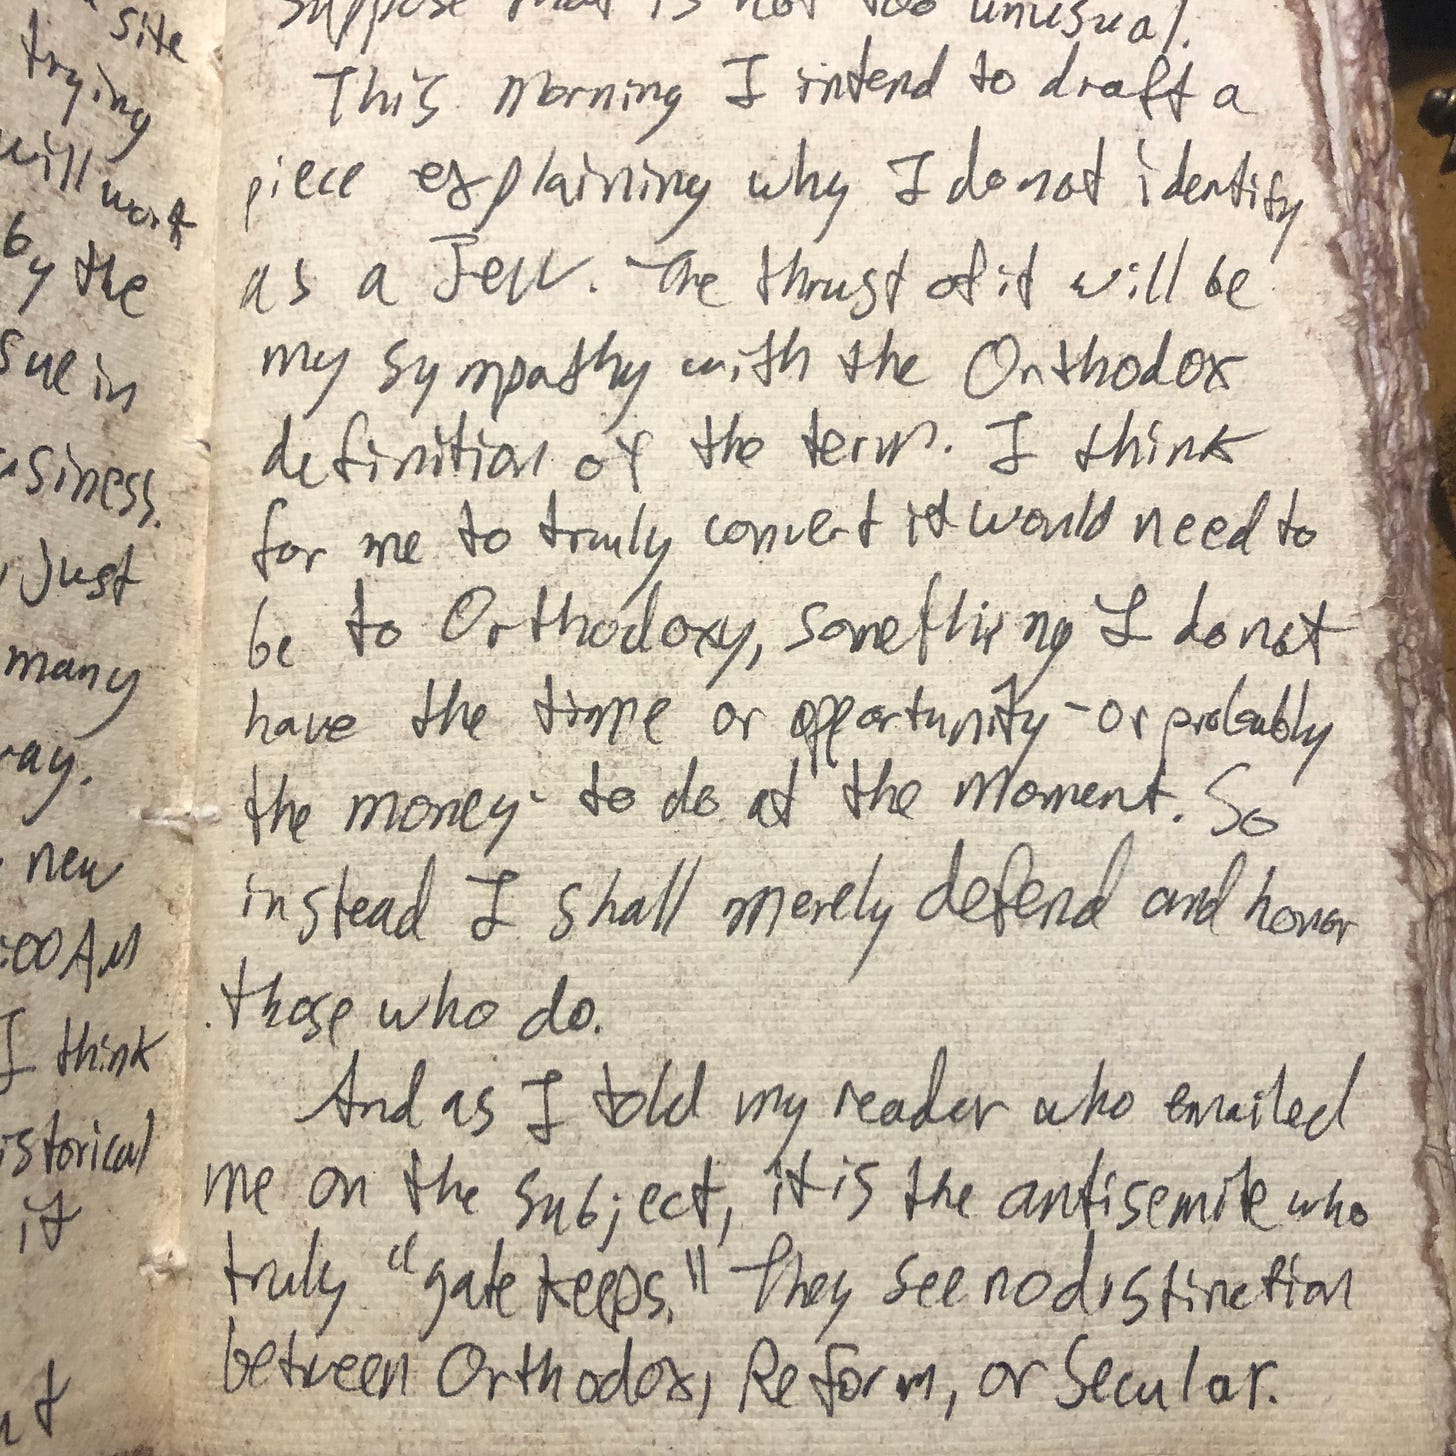 site
trying
will work
by the
sue in
siness.
Just
many
ay.
new
:00 AM
I think
istorical
it
suppose that is not too unusual.
This morning I intend to draft a
piece explaining why I do not identify
as a Jew. The thrust of it will be
my sympathy with the Orthodox
definition of the term. I think
for me to truly convert it would need to
be to Orthodoxy, something I do not
have the time or opportunity - or probably
the money - to do at the moment. So
instead I shall merely defend and honor
those who do.
And as I told my reader who emailed
me on the subject, it is the antisemite who
truly "gate keeps." They see no distinction
between Orthodox, Reform, or Secular.